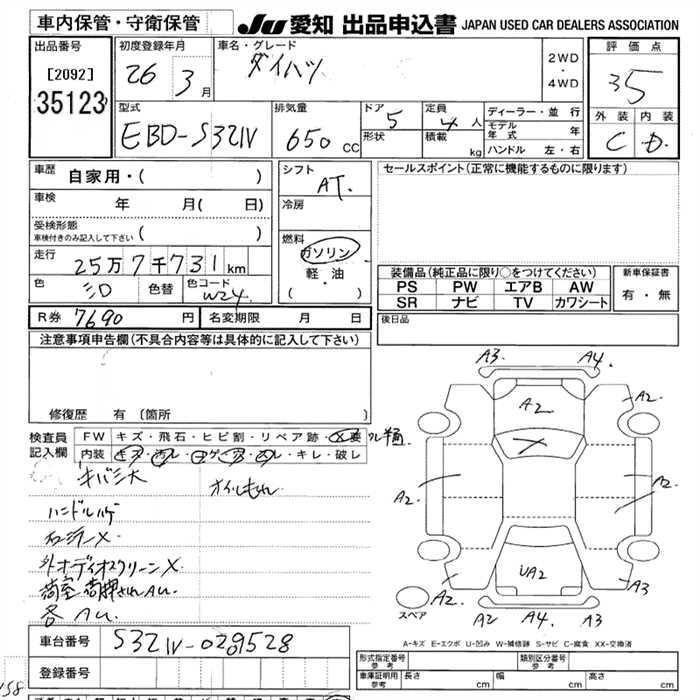 車内保管・守衛保管 JU 愛知 出品申込書 JAPAN USED CAR DEALERS ASSOCIATION
出品番号
[2092]
35123
初度登録年月
26 3月
車名・グレード
ダイハツ
2WD
・
4WD
評価点
35
型式
EBD-S321V
排気量
650 cc
ドア 5
形状
定員 4人
積載 kg
ディーラー・並行
モデル年式 年
ハンドル 左・右
外装 内装
C D
車歴 自家用・( )
車検 年 月( 日)
受検形態
車検付きのみ記入して下さい ( )
走行 25万7千731km
色 シロ 色替 色コード W24
R券 7690円 名変期限 月 日
シフト
AT
冷房
燃料
ガソリン
軽・油
( )
セールスポイント(正常に機能するものに限ります)
装備品(純正品に限り○をつけてください)
PS PW エアB AW
SR ナビ TV カワシート
新車保証書
有・無
後日品
注意事項申告欄(不具合内容等は具体的に記入して下さい)
修復歴 有(箇所 )
検査員
記入欄
FW キズ・飛石・ヒビ割・リペア跡・X要
内装 キズ・・コゲ・・・キレ・破レ
オイルもれ
ハンドルハゲ
外オーディオスクリーンX
各AU.
A3 A4
A2 A2
A2 A2
UA2
A2 A3
A2 A4 A3
スペア
A-キズ E-エクボ U-凹み W-補修跡 S-サビ C-腐食 XX-交換済
車台番号 S321V-0289528
登録番号
158
形式指定番号
参考
類別区分番号
参考
車庫証明用
参考
長さ cm 幅 cm 高さ cm